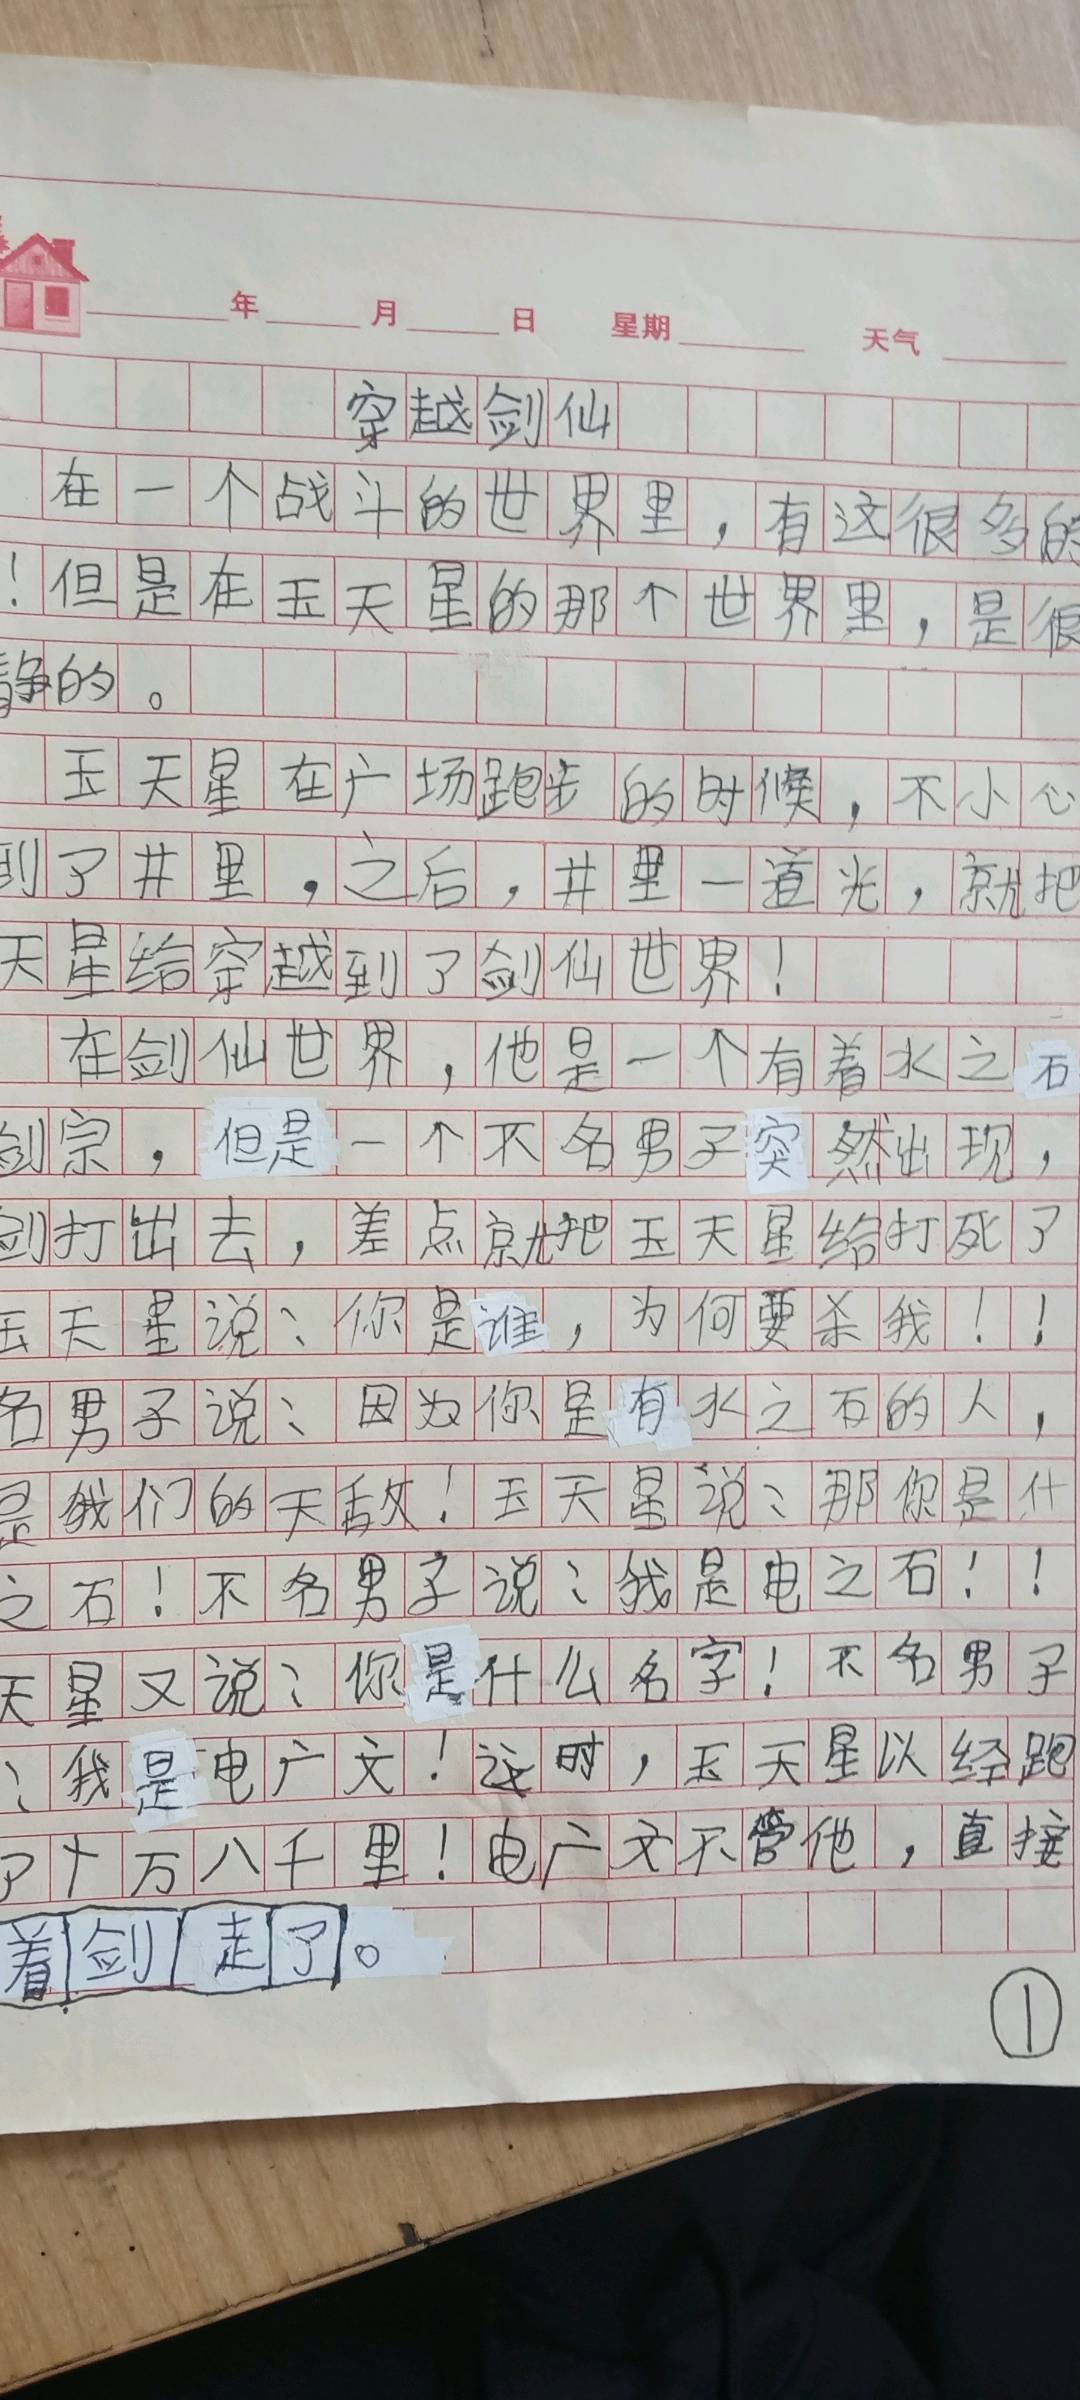 年 月 日 星期 天气
穿越剑仙
在一个战斗的世界里，有这很多的
！但是在玉天星的那个世界里，是很
静的。
玉天星在广场跑步的时候，不小心
到了井里，之后，井里一道光，就把
天星给穿越到了剑仙世界！
在剑仙世界，他是一个有着水之石
剑宗，但是一个不名男子突然出现，
剑打出去，差点就把玉天星给打死了
玉天星说：你是谁，为何要杀我！！
名男子说：因为你是有水之石的人，
是我们的天敌！玉天星说：那你是什
之石！不名男子说：我是电之石！！
天星又说：你是什么名字！不名男子
：我是电广文！这时，玉天星以经跑
了十万八千里！电广文不管他，直接
着剑走了。
①